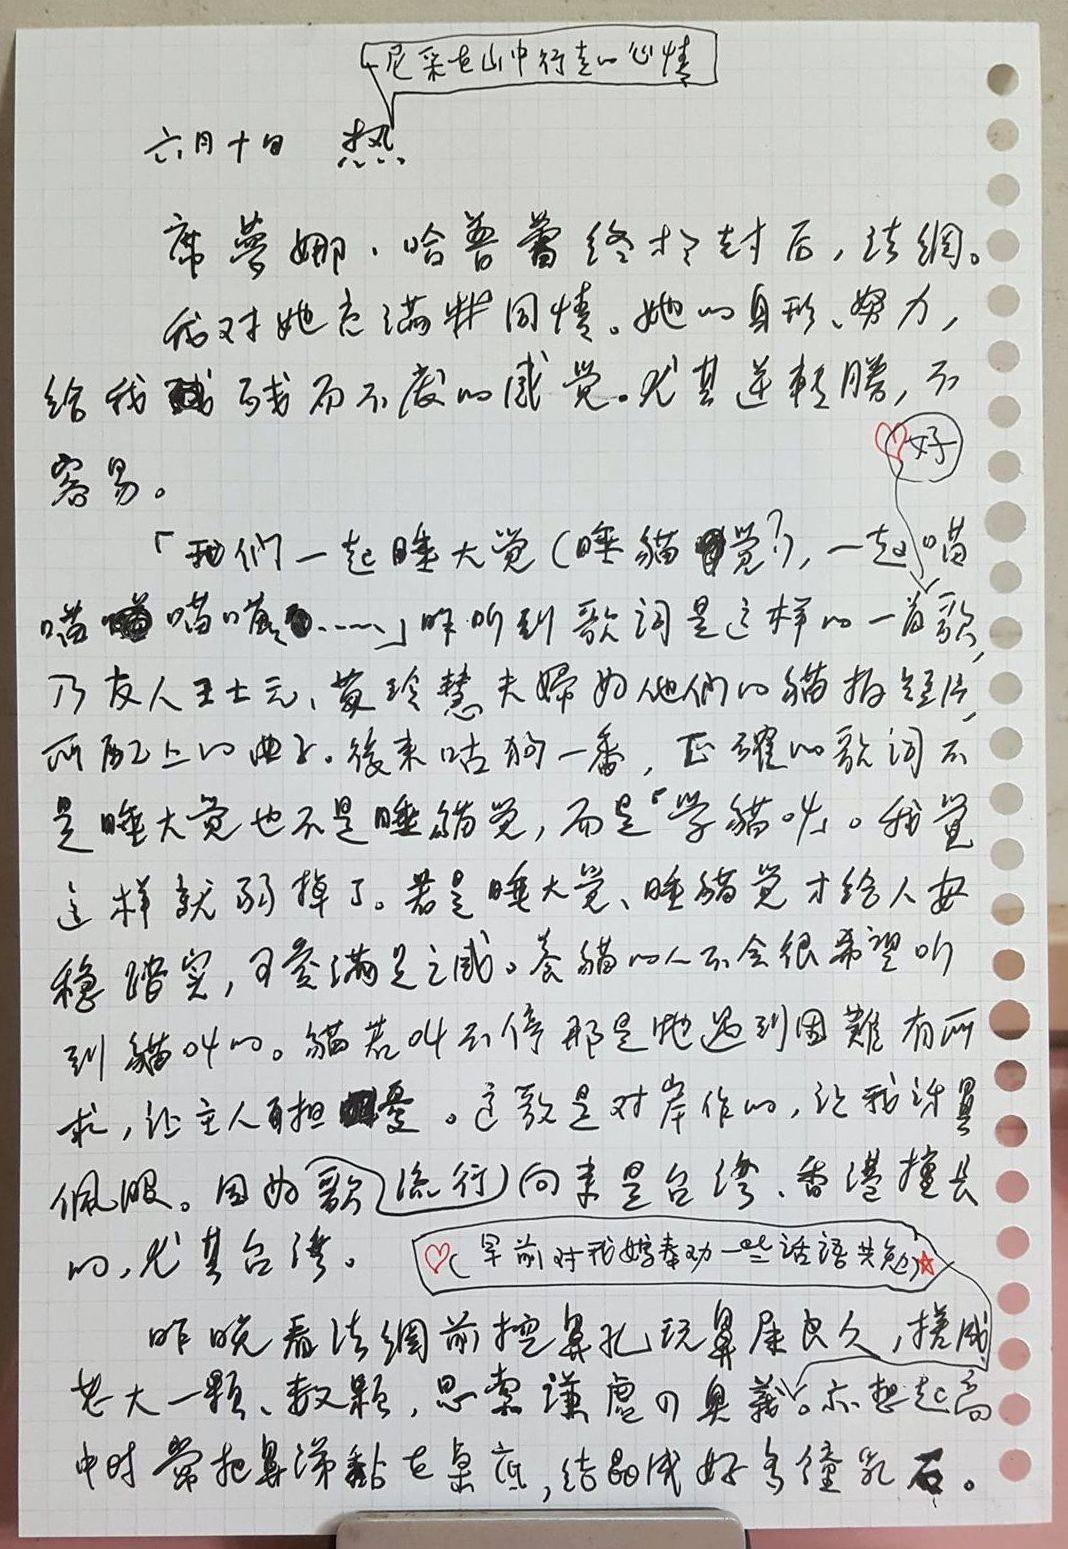 尼采在山中行走的心情
六月十日 热
席夢娜、哈普蕾終於封后，法網。
我对她充滿性同情。她的身形、努力，
給我 残而不废的感覚。尤其逆轉勝，不
容易。
好
「我们一起睡大觉（睡貓觉?），一起喵
喵 喵喵……」昨听到歌词是这样的一首歌，
乃友人王士元、黄玲慧夫婦为他们的貓拍短片，
所配上的曲子。後来咕狗一番，正確的歌词不
是睡大觉也不是睡貓觉，而是「学貓叫」。我覚
这样就弱掉了。若是睡大觉、睡貓觉才给人安
穩踏实，可爱滿足之感。养貓的人不会很希望听
到貓叫的。貓若叫不停那是牠遇到困難有所
求，让主人 担憂。这歌是对岸作的，让我讶異
佩服。因为流行歌向来是台灣、香港擅長
的，尤其台灣。
（早前对我媽奉劝一些话语共勉）
昨晚看法網前挖鼻孔玩鼻屎良久，搓成
老大一顆、数顆，思索谦虚の奥義。亦想起高
中时常把鼻涕黏在桌底，结晶成好多鐘乳石。